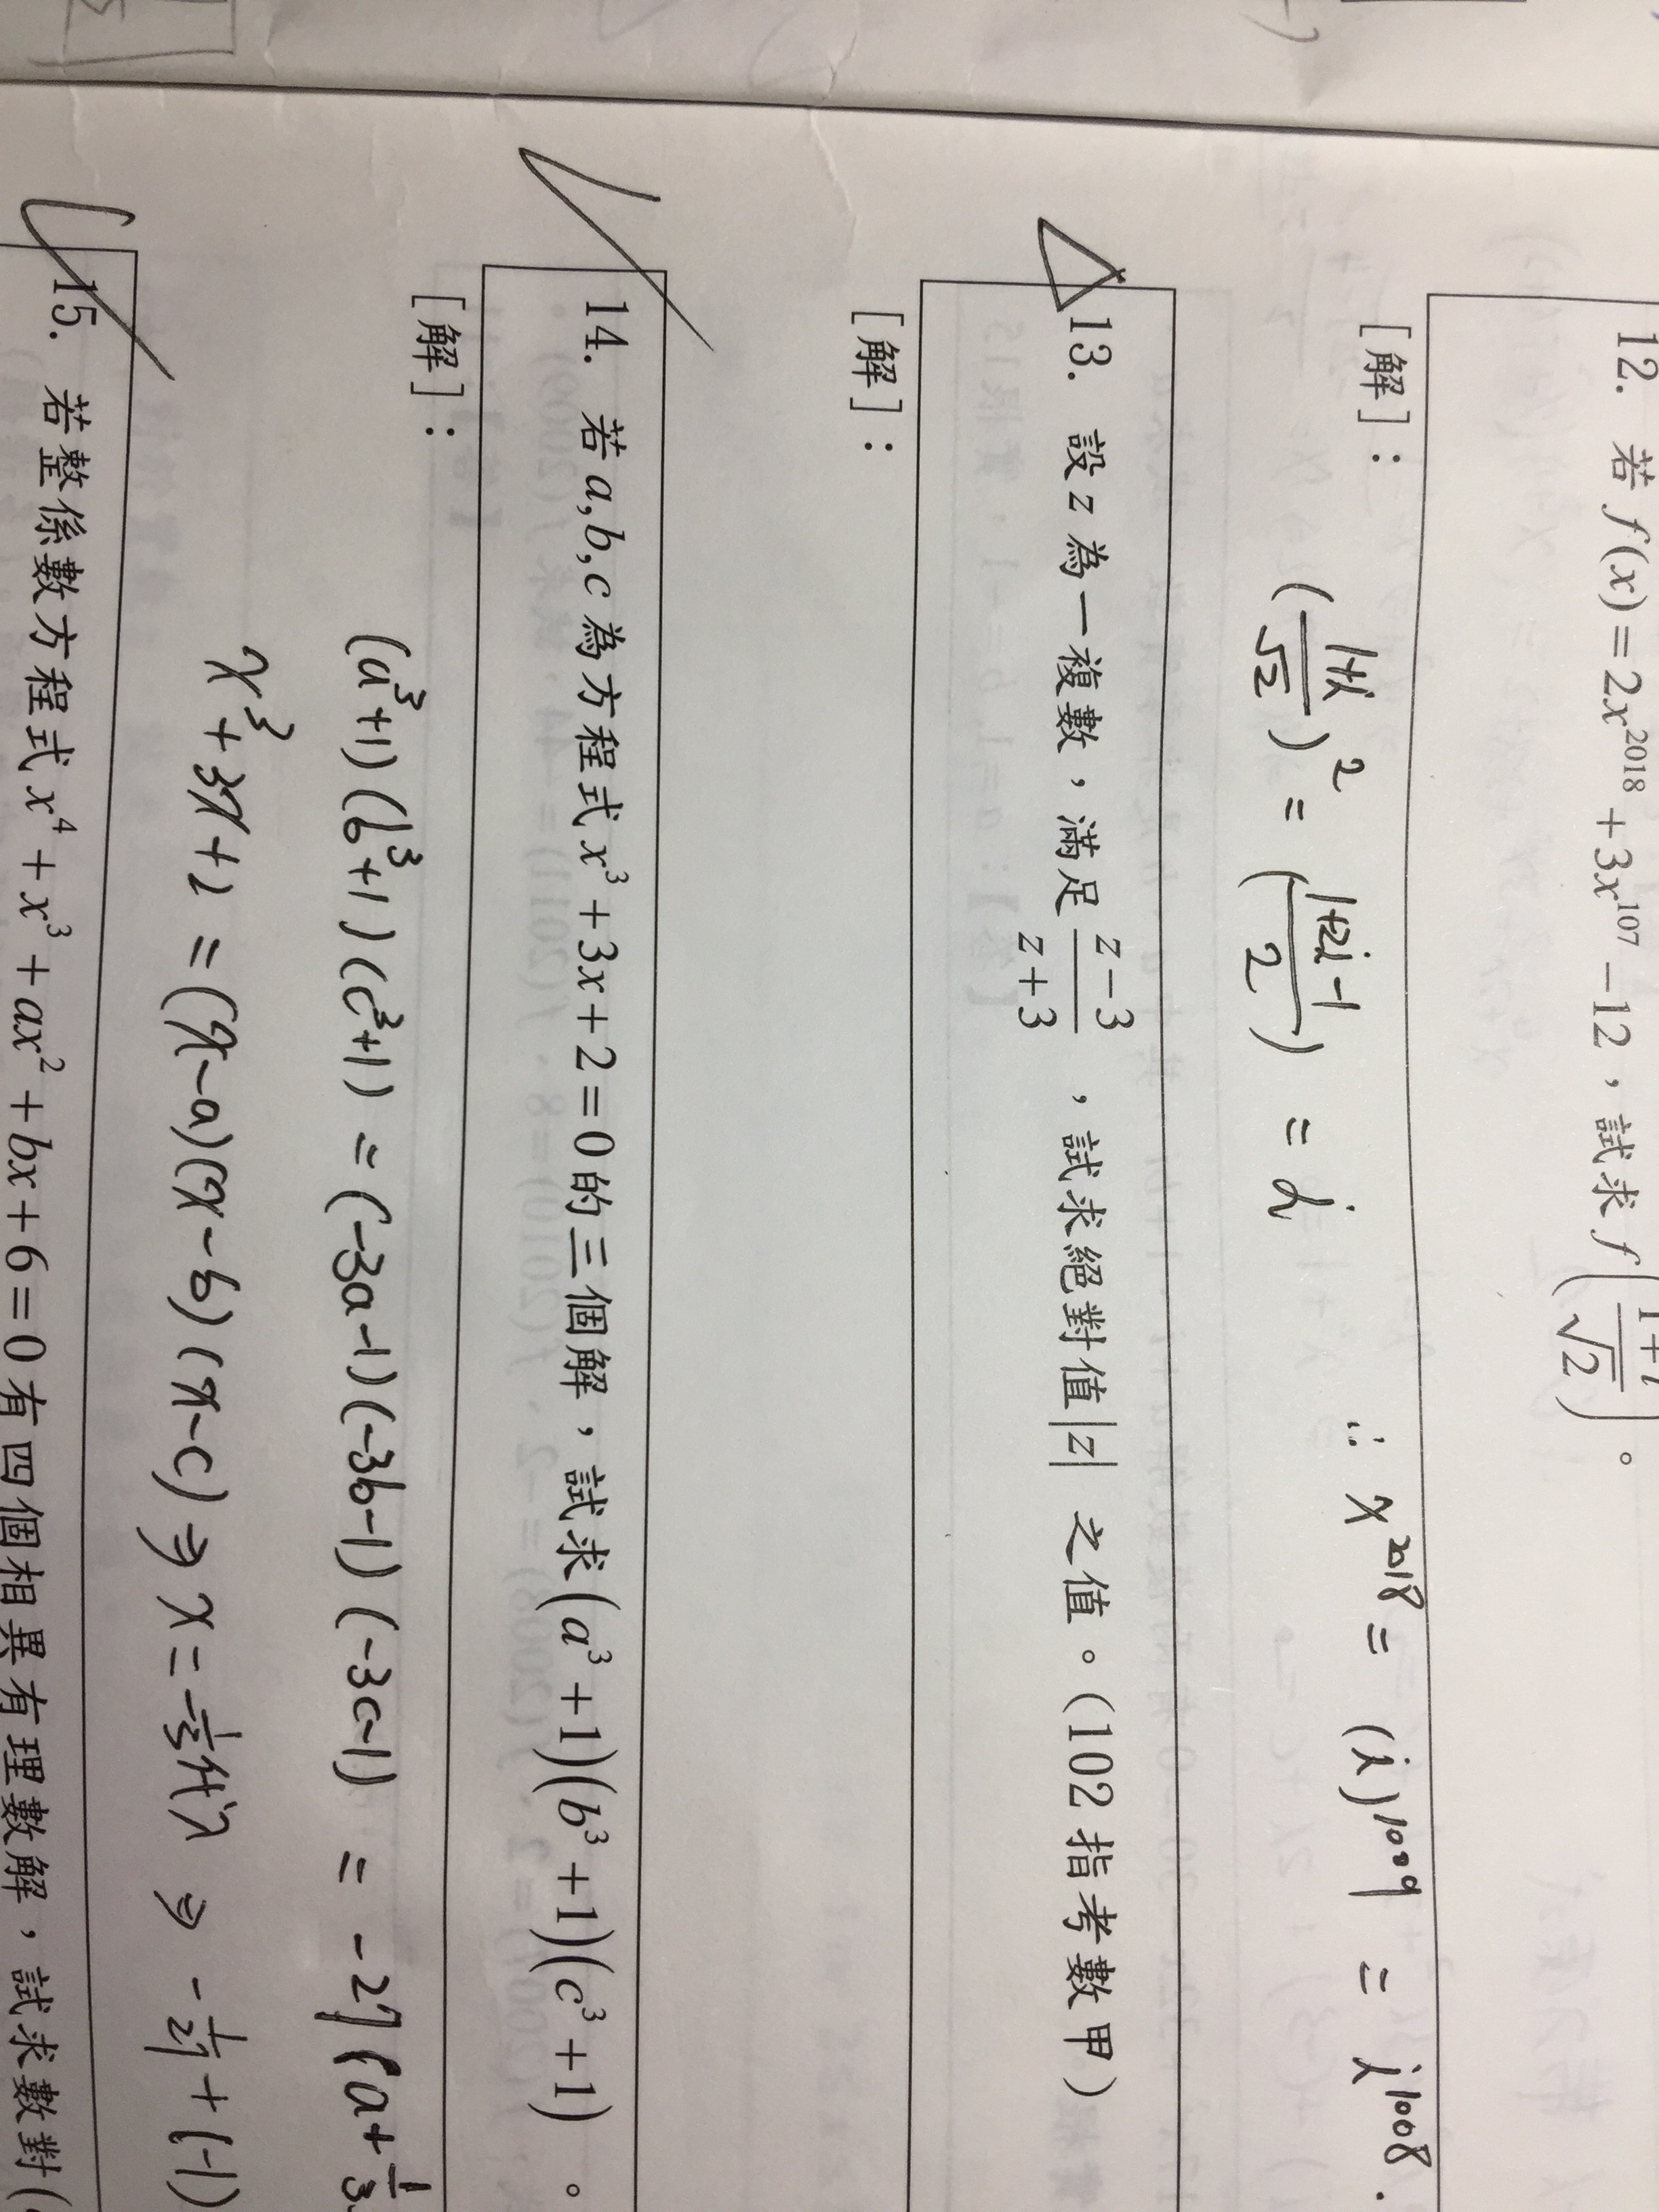 12. 若 f(x)=2x^2018+3x^107-12，試求 f((1+i)/√2)。
[解]：
((1+i)/√2)^2 = ((1+2i-1)/2) = i ∴ x^2018 = (i)^1009 = i^1008 .
13. 設 z 為一複數，滿足 (z-3)/(z+3) ，試求絕對值|z| 之值。(102 指考數甲)
[解]：
14. 若 a,b,c 為方程式 x^3+3x+2=0 的三個解，試求(a^3+1)(b^3+1)(c^3+1) 。
[解]：
(a^3+1)(b^3+1)(c^3+1) = (-3a-1)(-3b-1)(-3c-1) = -27(a+1/3
x^3+3x+2 = (x-a)(x-b)(x-c) ⇒ x=-1/3代入 ⇒ -1/27+(-1)
15. 若整係數方程式 x^4+x^3+ax^2+bx+6=0 有四個相異有理數解，試求數對(